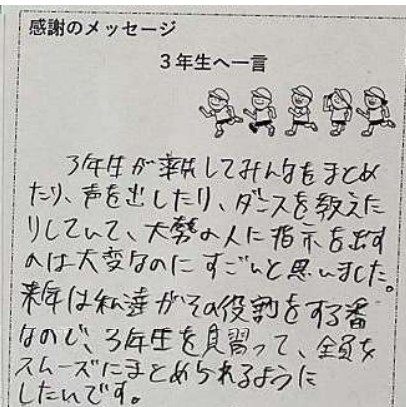 感謝のメッセージ
3年生へ一言
3年生が率先してみんなをまとめ
たり、声を出したり、ダンスを教えた
りしていて、大勢の人に指示を出す
のは大変なのにすごいと思いました。
来年は私達がその役割をする番
なので、3年生を見習って、全員を
スムーズにまとめられるように
したいです。